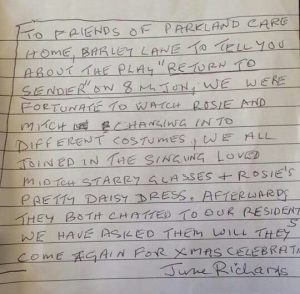 TO FRIENDS OF PARKLAND CARE
HOME, BARLEY LANE TO TELL YOU
ABOUT THE PLAY "RETURN TO
SENDER" ON 8 MJON, WE WERE
FORTUNATE TO WATCH ROSIE AND
MITCH CHANGING INTO
DIFFERENT COSTUMES, WE ALL
JOINED IN THE SINGING LOVED
MIDTCH STARRY GLASSES + ROSIE'S
PRETTY DAISY DRESS. AFTERWARDS
THEY BOTH CHATTED TO OUR RESIDENTS
WE HAVE ASKED THEM WILL THEY
COME AGAIN FOR XMAS CELEBRATI
June Richards